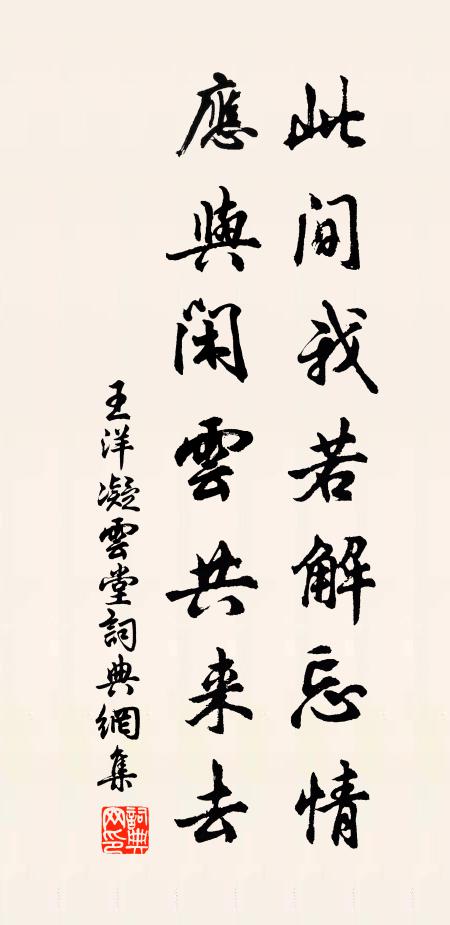 此间我若解忘情
應與閑雲共来去
王洋凝雲堂詞典網集
詞典网印